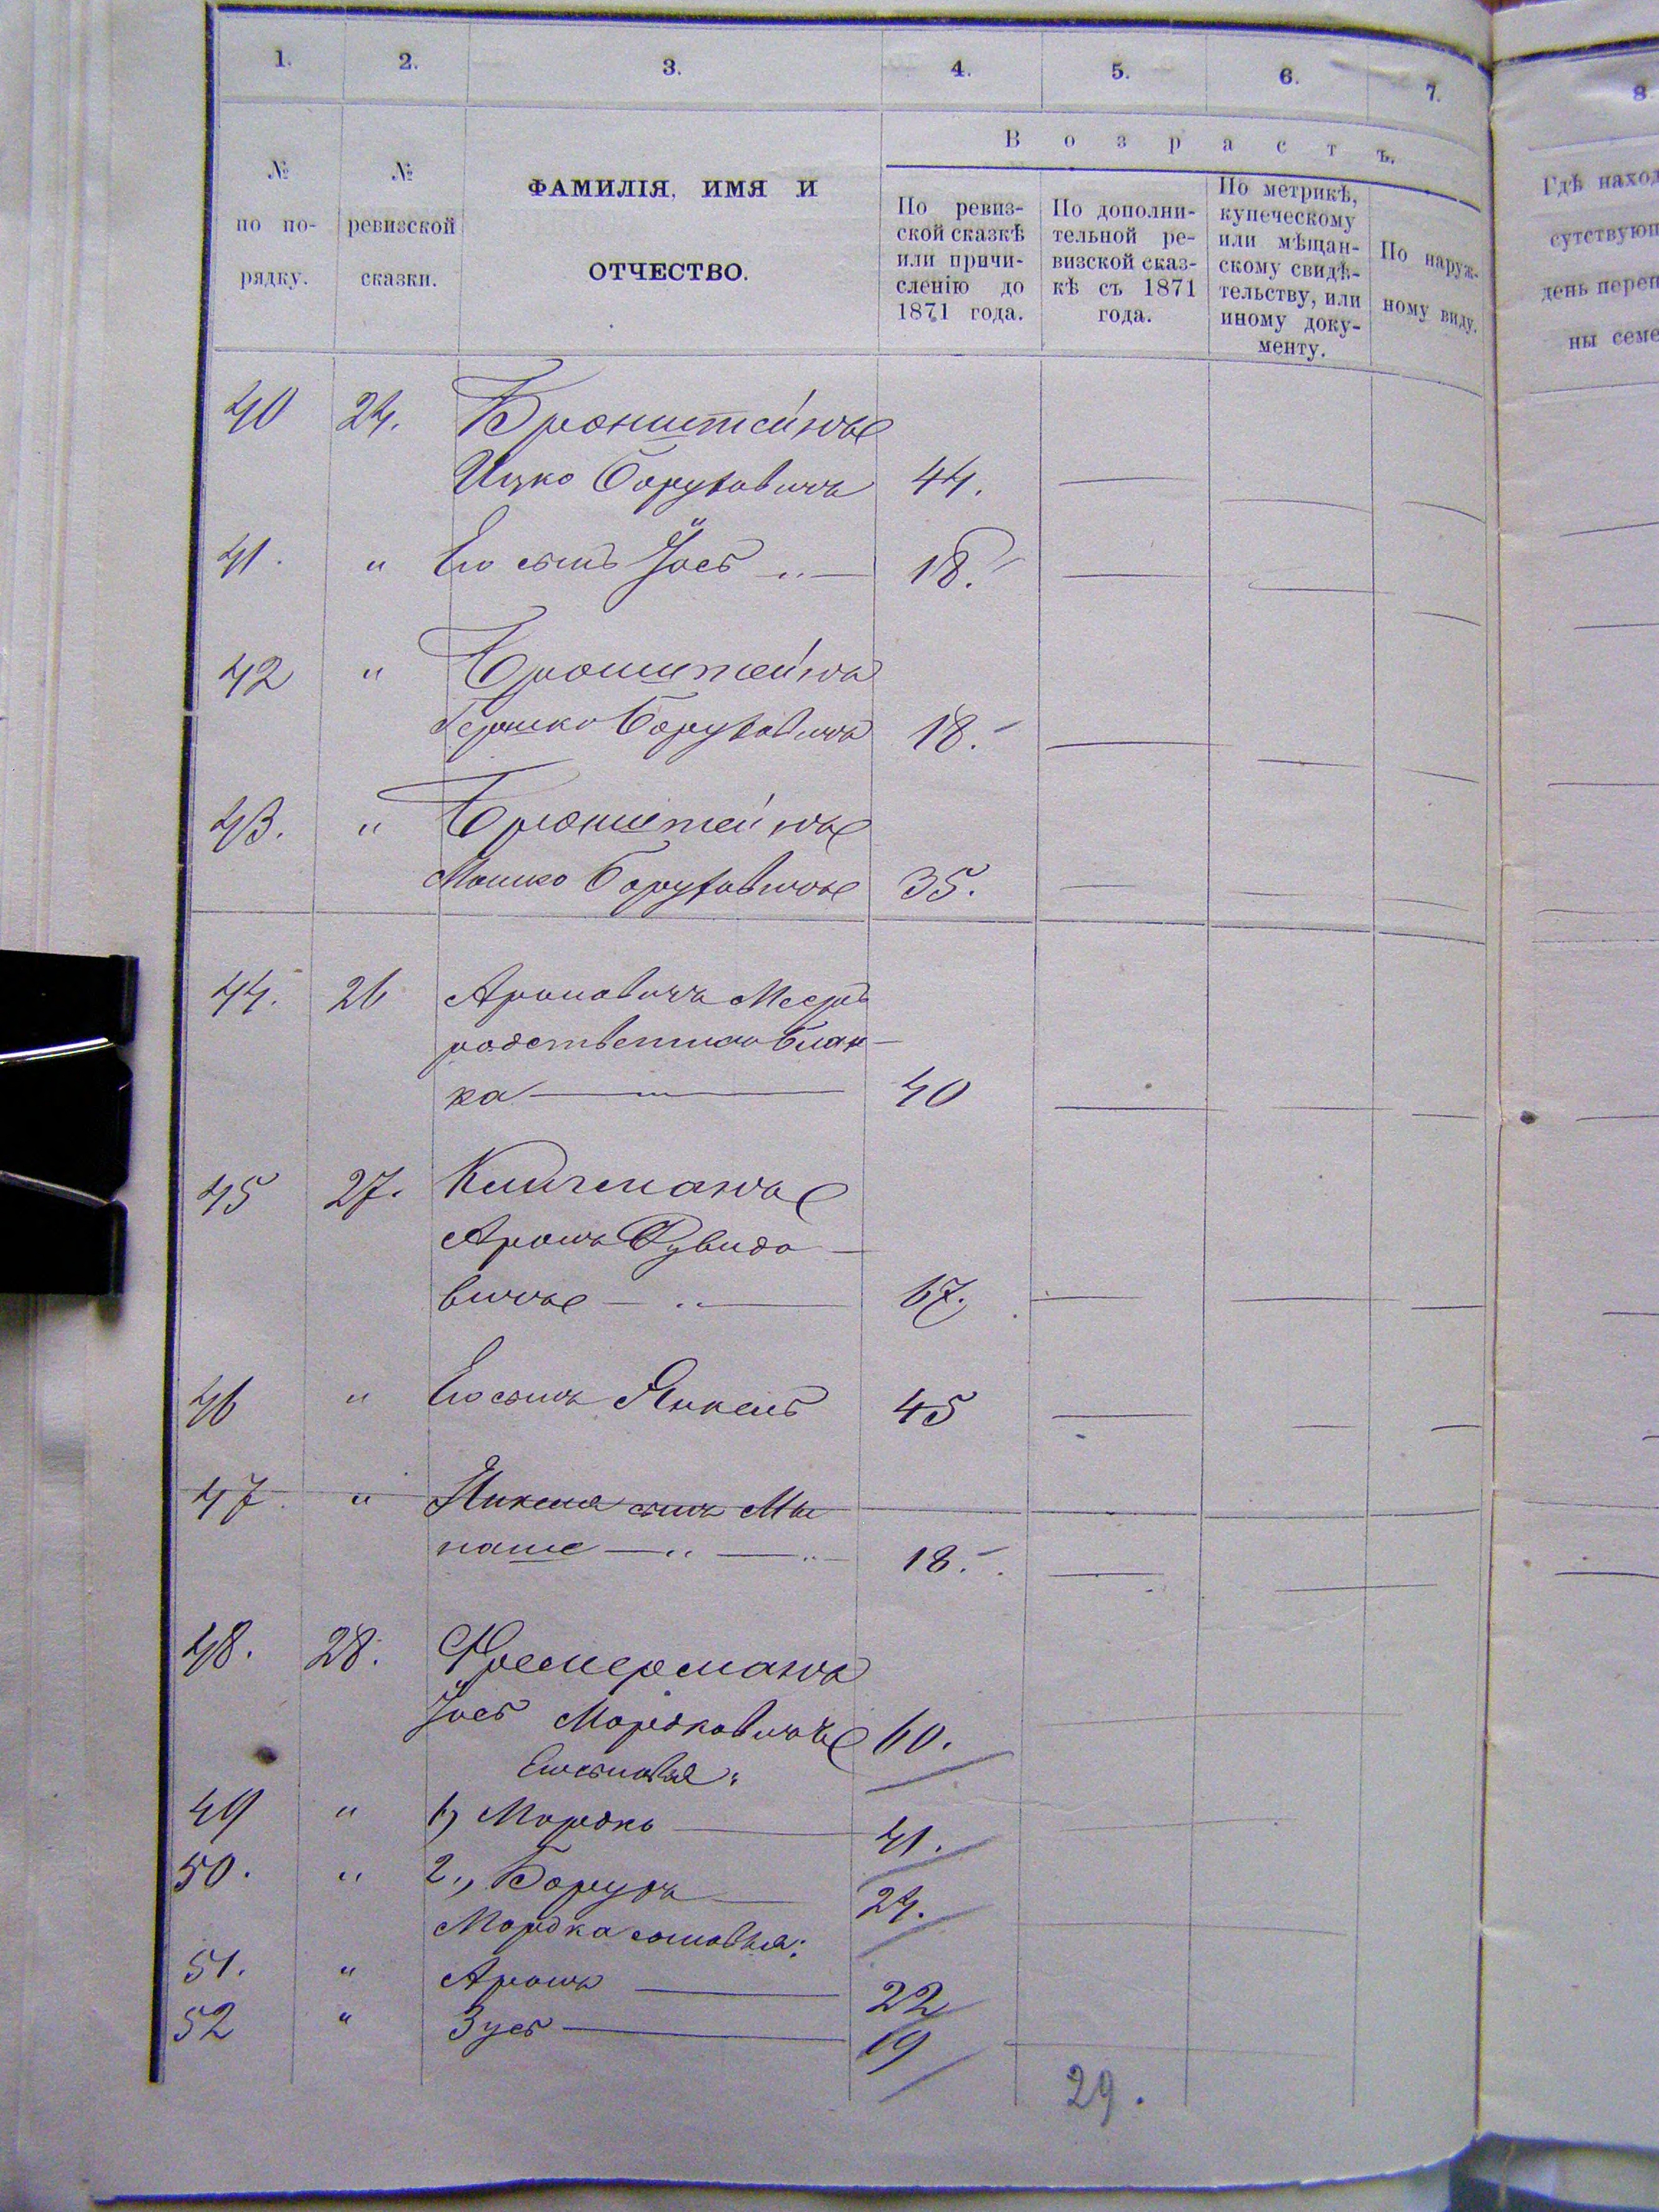 1. 2. 3. 4. 5. 6. 7. 8
В о з р а с т ъ.
№ по по-рядку.
№ ревизской сказки.
ФАМИЛІЯ, ИМЯ И
ОТЧЕСТВО.
По ревиз-
ской сказкѣ
или причи-
сленію до
1871 года.
По дополни-
тельной ре-
визской сказ-
кѣ съ 1871
года.
По метрикѣ,
купеческому
или мѣщан-
скому свидѣ-
тельству, или
иному доку-
менту.
По наруж-
ному виду.
Гдѣ наход
сутствующ
день переп
ны семе
40 24. Бронштейнъ
Ицко Боруховичъ 44.
41. " Его сынъ Іосъ 18.
42 " Бронштейнъ
Гершко Боруховичъ 18.
43. " Бронштейнъ
Мошко Боруховичъ 35.
44. 26 Ароновичъ Мееръ
родственникъ Блан-
ка 40
45 27. Клигманъ
Аронъ Рувидо-
вичъ 67.
46 " Его сынъ Янкель 45
47 " Янкеля сынъ Мы
наше 18.
48. 28. Фремерманъ
Іосъ Мордковичъ 60.
Его сыновья:
49 " 1, Мордко 41.
50. " 2., Борухъ 24.
Мордка сыновья:
51. " Аронъ 22
52 " Зусъ 19
29.